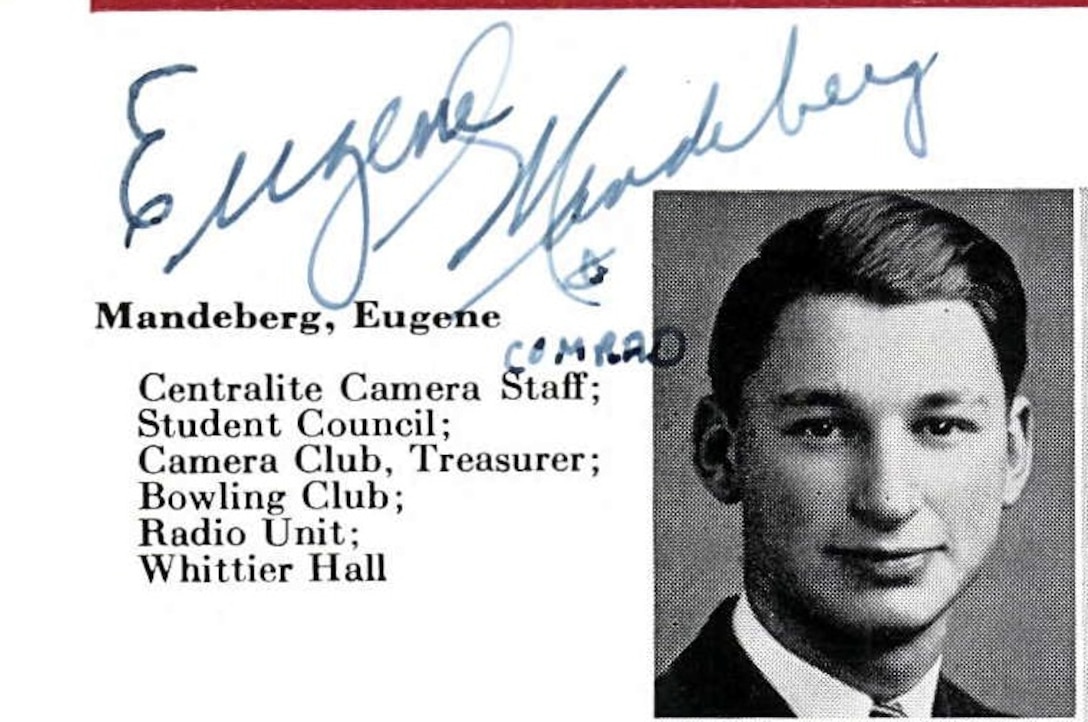 Eugene Mandeberg
&
COMRAD
Mandeberg, Eugene
Centralite Camera Staff;
Student Council;
Camera Club, Treasurer;
Bowling Club;
Radio Unit;
Whittier Hall